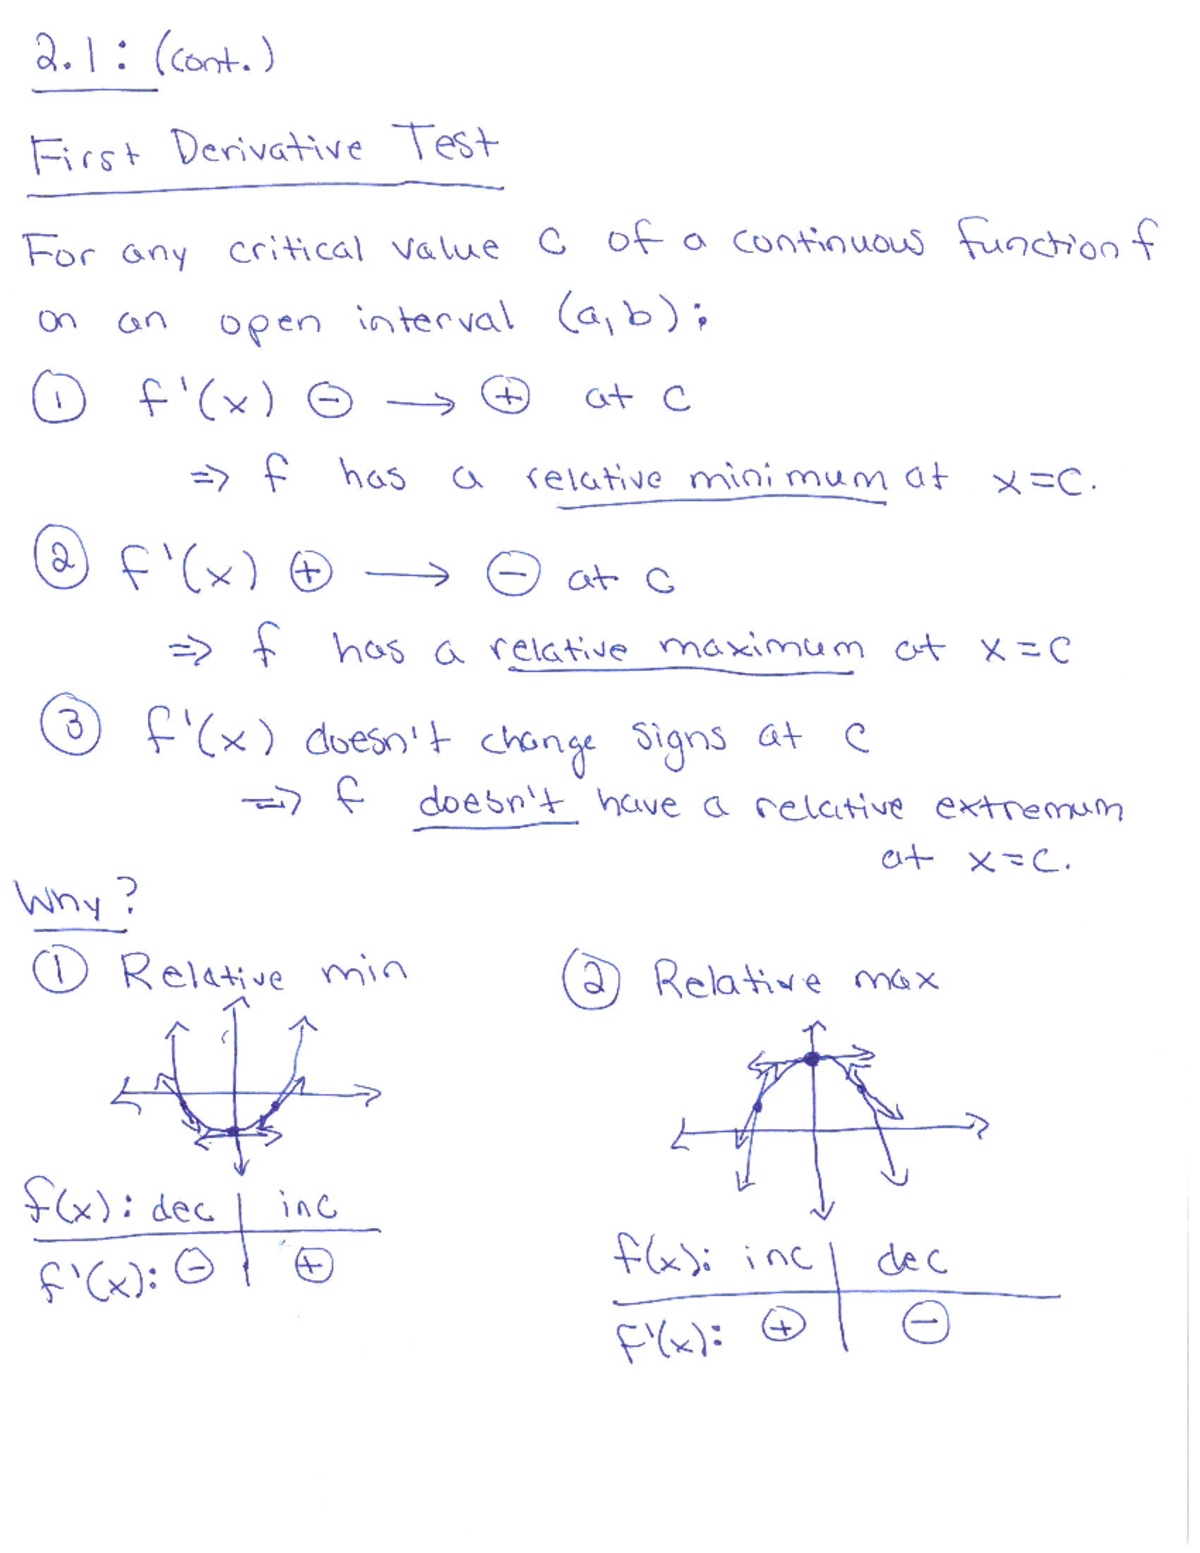 2.1: (cont.)
First Derivative Test
For any critical value c of a continuous function f
on an open interval (a,b):
① f'(x) ⊖ → ⊕ at c
⇒ f has a relative minimum at x=c.
② f'(x) ⊕ → ⊖ at c
⇒ f has a relative maximum at x=c
③ f'(x) doesn't change signs at c
⇒ f doesn't have a relative extremum
at x=c.
Why?
① Relative min
② Relative max
f(x): dec | inc
f'(x): ⊖ | ⊕
f(x): inc | dec
f'(x): ⊕ | ⊖